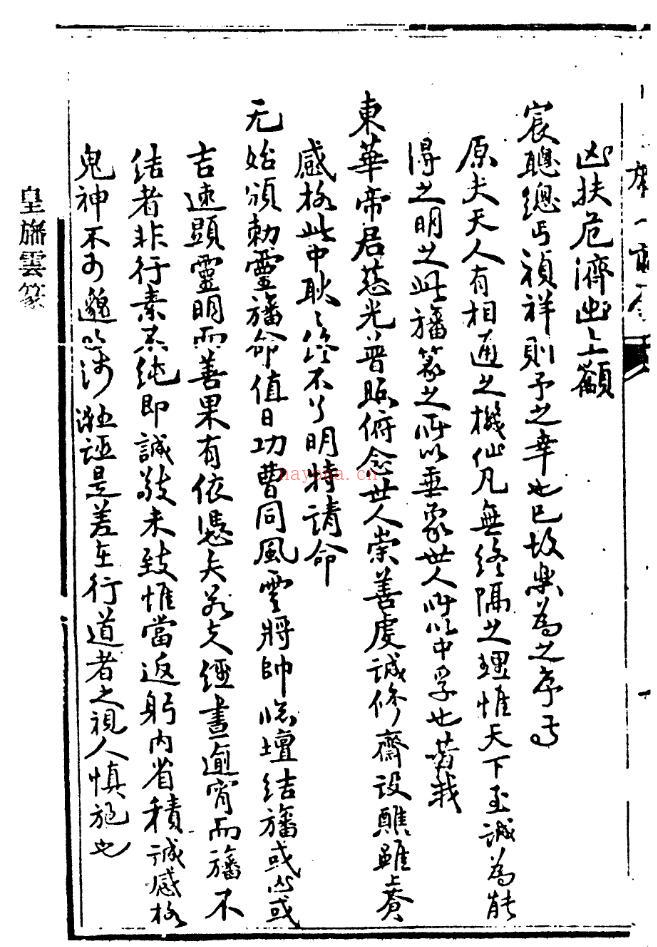 凶扶危濟世上籲
宸聰總丐禎祥則予之幸也已故樂為之序焉
原夫天人有相通之機仙凡無終隔之理惟天下至誠為能
得之明之此旛篆之所以垂象世人所以中孚也昔哉
東華帝君慈光普照俯念世人崇善虔誠修齋設醮雖賫
感格此中耿耿終不分明特請命
无始頒勅靈旛命值日功曹同風雲將帥臨壇結旛或凶或
吉速顯靈明而善果有依憑矣若夫經晝逾宵而旛不
結者非行素不純即誠敬未致惟當返躬內省積誠感格
鬼神不可邈以涉誣是差在行道者之視人慎施也
皇旛雲篆
haytha.cn